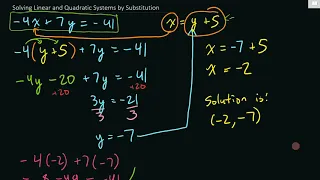 Solving Linear and Quadratic Systems by Substitution
-4x + 7y = -41
x = y + 5
-4(y+5) + 7y = -41
-4y -20 + 7y = -41
+20 +20
3y = -21
3 3
y = -7
x = -7 + 5
x = -2
Solution is:
(-2, -7)
-4(-2) + 7(-7)